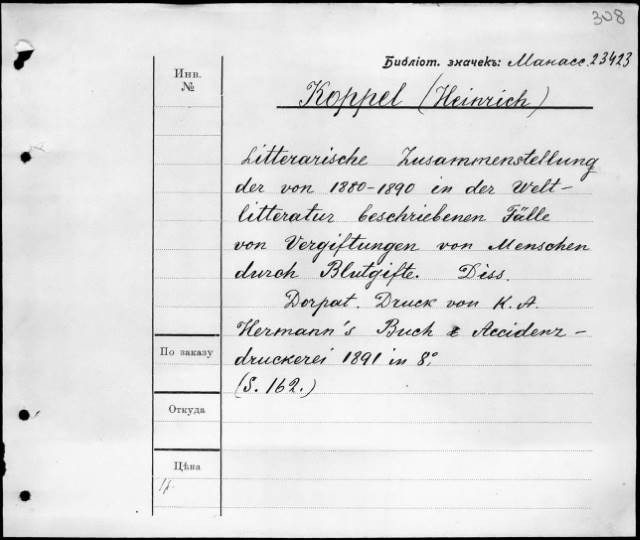 308
Библіот. значекъ: Манасс. 23423
Инв.
№
Koppel (Heinrich)
Litterarische Zusammenstellung
der von 1880-1890 in der Welt-
litteratur beschriebenen Fälle
von Vergiftungen von Menschen
durch Blutgifte. Diss.
Dorpat. Druck von K. A.
Hermann's Buch & Accidenz-
druckerei 1891 in 8º.
(S. 162.)
По заказу
Откуда
Цѣна